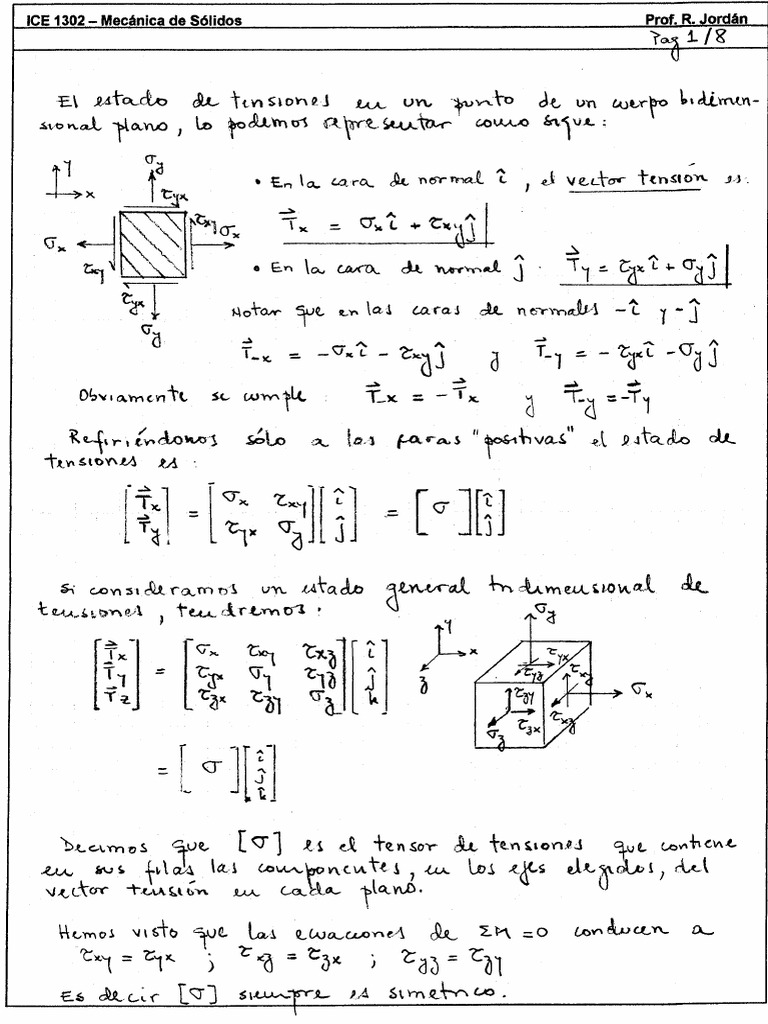 ICE 1302 – Mecánica de Sólidos
Prof. R. Jordán
Pag 1/8
El estado de tensiones en un punto de un cuerpo bidimen-
sional plano, lo podemos representar como sigue:
y
x
σy
τyx
τxy
σx
σx
τxy
τyx
σy
• En la cara de normal î, el vector tensión es:
T⃗x = σx î + τxy ĵ
• En la cara de normal ĵ. T⃗y = τyx î + σy ĵ
Notar que en las caras de normales -î y -ĵ
T⃗-x = -σx î - τxy ĵ y T⃗-y = - τyx î - σy ĵ
Obviamente se cumple: T⃗-x = - T⃗x y T⃗-y = - T⃗y
Refiriéndonos sólo a las caras "positivas" el estado de
tensiones es:
[T⃗x] = [σx τxy] [î] = [σ] [î]
[T⃗y] [τyx σy] [ĵ] [ĵ]
Si consideramos un estado general tridimensional de
tensiones, tendremos:
[T⃗x] [σx τxy τxz] [î]
[T⃗y] = [τyx σy τyz] [ĵ]
[T⃗z] [τzx τzy σz] [k]
y
x
z
σy
τyx
τyz
τxy
σx
τxz
τzy
τzx
σz
= [σ] [î]
[ĵ]
[k̂]
Decimos que [σ] es el tensor de tensiones que contiene
en sus filas las componentes, en los ejes elegidos, del
vector tensión en cada plano.
Hemos visto que las ecuaciones de ΣM = 0 conducen a
τxy = τyx ; τxz = τzx ; τyz = τzy
Es decir [σ] siempre es simetrico.